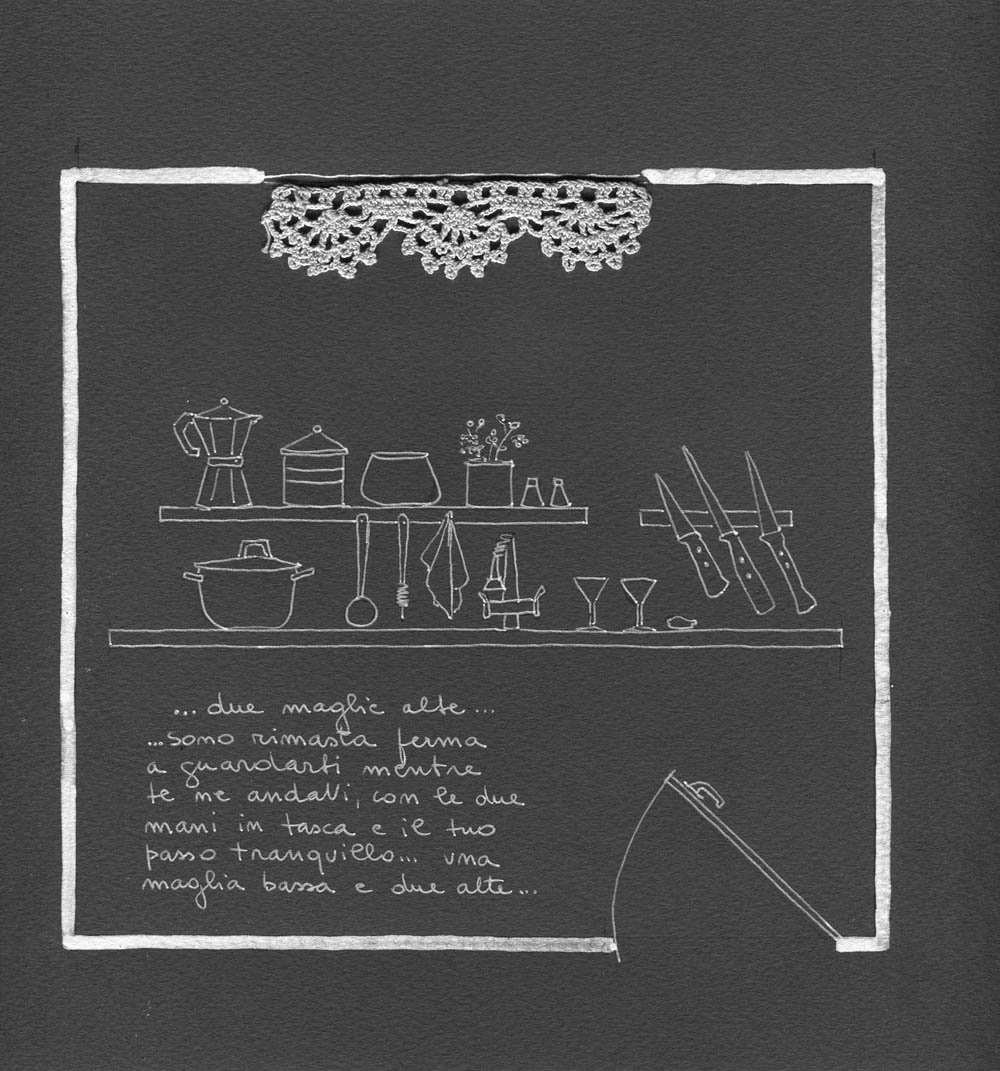 ... due maglie alte ...
... sono rimasta ferma
a guardarti mentre
te ne andavi, con le due
mani in tasca e il tuo
passo tranquillo... una
maglia bassa e due alte...